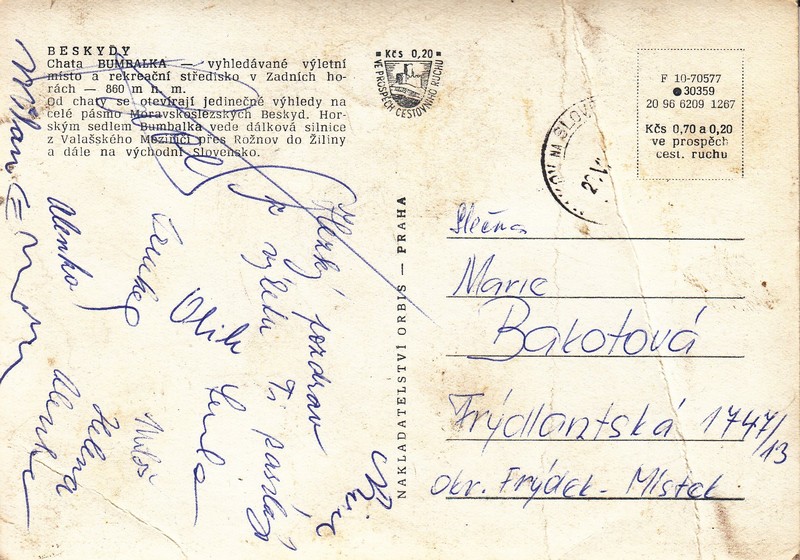 BESKYDY
Chata BUMBALKA — vyhledávané výletní
místo a rekreační středisko v Zadních ho-
rách — 860 m n. m.
Od chaty se otevírají jedinečné výhledy na
celé pásmo Moravskoslezských Beskyd. Hor-
ským sedlem Bumbalka vede dálková silnice
z Valašského Meziříčí přes Rožnov do Žiliny
a dále na východní Slovensko.
Kčs 0,20
VE PROSPĚCH CESTOVNÍHO RUCHU
F 10-70577
30359
20 96 6209 1267
Kčs 0,70 a 0,20
ve prospěch
cest. ruchu
NAKLADATELSTVÍ ORBIS — PRAHA
Hezký pozdrav
z výletu Ti posílají
Milan
Alenka
Lenka
Miloš
Helena
Slečna
Marie
Bakotová
Frýdlantská 1747/13
okr. Frýdek-Místek